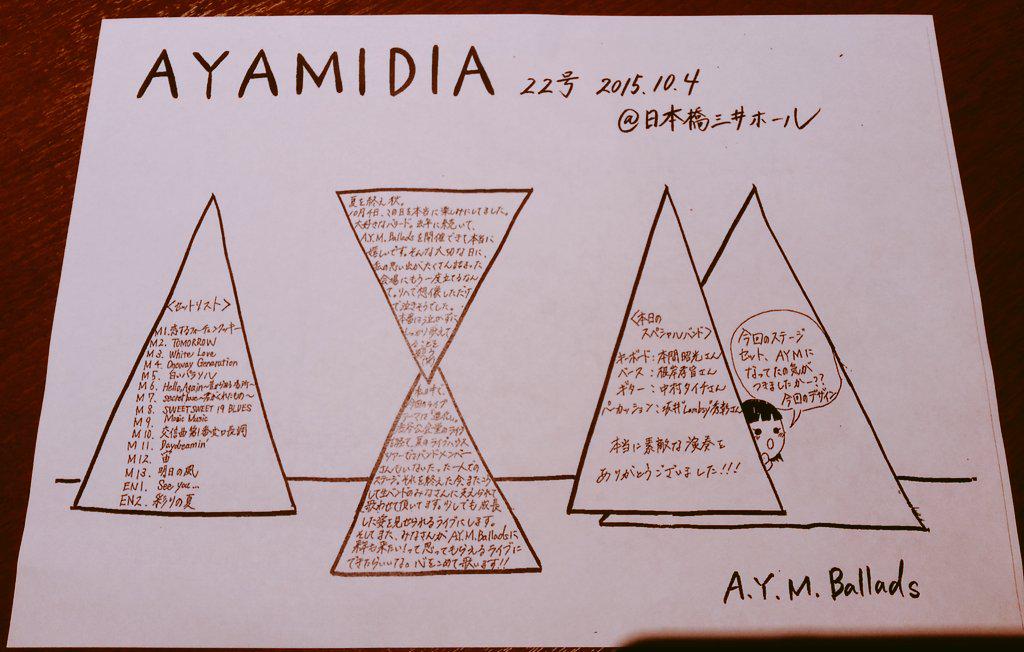 AYAMIDIA 22号 2015.10.4
@日本橋三井ホール
<セットリスト>
M1. 恋するフォーチュンクッキー
M2. TOMORROW
M3. White Love
M4. Oneway Generation
M5. 白いパラソル
M6. Hello, Again〜昔からある場所〜
M7. secret base〜君がくれたもの〜
M8. SWEET SWEET 19 BLUES
M9. Music Music
M10. 交信曲第1番変ロ長調
M11. Daydreamin'
M12. 宙
M13. 明日の風
EN1. See you...
EN2. 彩りの夏
夏を終え秋。
10月4日、この日を本当に楽しみにしてました。
大好きなバラード。去年に続いて、
A.Y.M. Balladsを開催できて本当に
嬉しいです。そんな大切な日に、
私の思い出がたくさん詰まった
会場にもう一度立てるなん
て。リハで想像しただけ
で泣きそうでした。
本番は泣かずに
しっかり歌えて
ることを
今回のライブ
テーマは"進化"。
ツアーではバンドメンバー
さんもいないたった一人での
ステージ。それを終えた今、またこう
して生バンドのみなさんに支えられて
歌わせて頂いてます。少しでも成長
した姿を見せられるライブにします。
そしてまた、みなさんがA.Y.M. Balladsに
来年も来たい!って思ってもらえるライブに
できたらいいな。心をこめて歌います!!
<本日の
スペシャルバンド>
キーボード:本間昭光さん
ベース:根岸孝旨さん
ギター:中村タイチさん
パーカッション:坂井"Lambsy"秀彰さん
本当に素敵な演奏を
ありがとうございました!!!
今回のステージ
セット、AYMに
なってたの気が
つきましたかー??
今回のデザイン
A.Y.M. Ballads